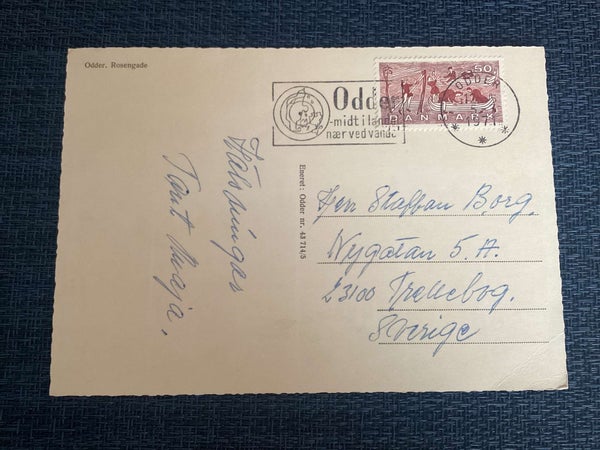 Odder. Rosengade
Odder
-midt i land
nær ved vande
50
DANMARK
ODDER
Eneret: Odder nr. 43 714/5
Hälsningar
Tant Maja.
Herr Staffan Borg.
Nygatan 5. A.
23100 Trelleborg.
Sverige